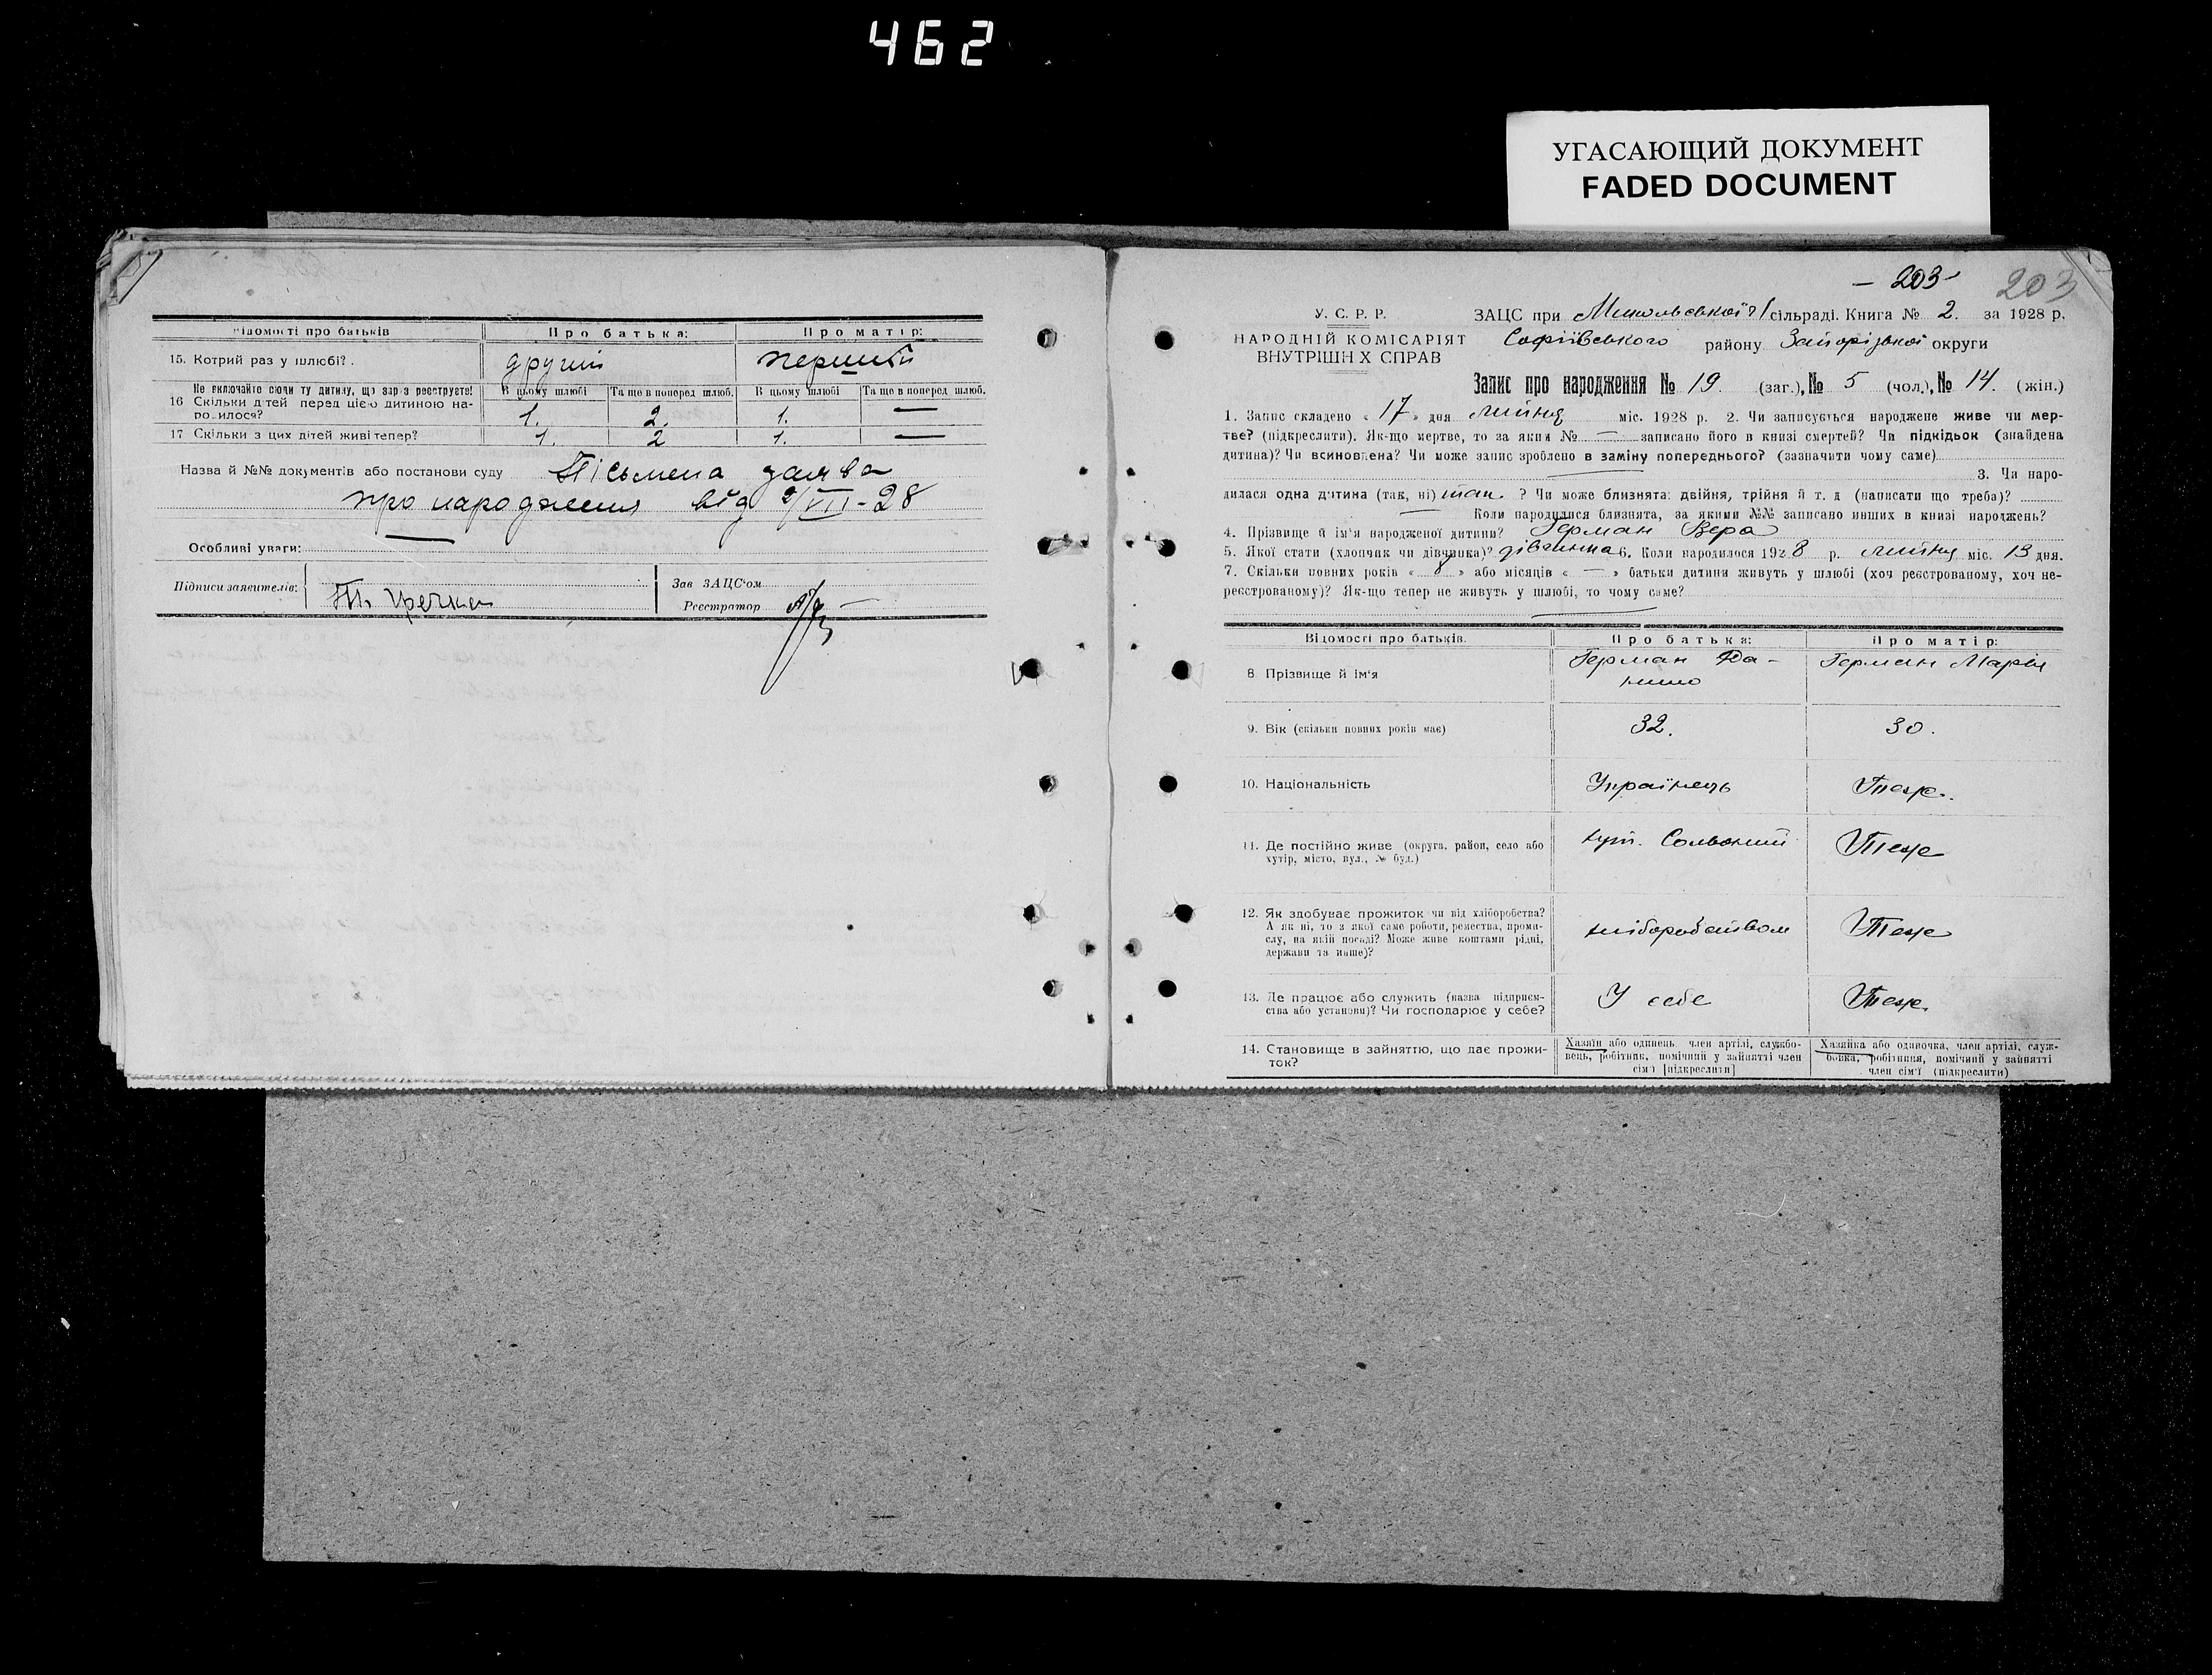 462
УГАСАЮЩИЙ ДОКУМЕНТ
FADED DOCUMENT
Відомості про батьків
Про батька:
Про матір:
15. Котрий раз у шлюбі?
другий
перший
Не включайте сюди ту дитину, що зараз реєструєте!
В цьому шлюбі
Та ще в поперед. шлюб.
В цьому шлюбі
Та ще в поперед. шлюб.
16 Скільки дітей перед цією дитиною на-
родилося?
1. 2. 1. —
17 Скільки з цих дітей живі тепер?
1. 2 1. —
Назва й №№ документів або постанови суду Пісьмена заява
про народження від 2/VII-28
Особливі уваги:
Підписи заявителів:
Т. Гречка
Зав ЗАЦС'ом
Реєстратор
- 203 -
203
У. С. Р. Р.
НАРОДНІЙ КОМІСАРІЯТ
ВНУТРІШНІХ СПРАВ
ЗАЦС при сільраді. Книга № 2. за 1928 р.
Софіївського району Запорізької округи
Запис про народження № 19. (заг.), № 5 (чол.), № 14. (жін.)
1. Запис складено « 17 » дня липня міс. 1928 р. 2. Чи записується народжене живе чи мер-
тве? (підкреслити). Як-що мертве, то за яким № — записано його в книзі смертей? Чи підкідьок (знайдена
дитина)? Чи всиновлена? Чи може запис зроблено в заміну попереднього? (зазначити чому саме)
3. Чи наро-
дилася одна дитина (так, ні) так. ? Чи може близнята: двійня, трійня й т. д (написати що треба)?
Коли народилися близнята, за якими №№ записано инших в книзі народжень?
4. Прізвище й ім'я народженої дитини? Герман Вера
5. Якої стати (хлопчик чи дівчинка)? дівчинка 6. Коли народилося 1928 р. липня міс. 13 дня.
7. Скільки повних років « 8 » або місяців « — » батьки дитини живуть у шлюбі (хоч реєстрованому, хоч не-
реєстрованому)? Як-що тепер не живуть у шлюбі, то чому саме?
Відомості про батьків.
Про батька:
Про матір:
8. Прізвище й ім'я
Герман Да-
нило
Герман Марія
9. Вік (скільки повних років має)
32.
30.
10. Національність
Українець
Теж.
11. Де постійно живе (округа, район, село або
хутір, місто, вул., № буд.)
хут.
Теж
12. Як здобуває прожиток чи від хліборобства?
А як ні, то з якої саме роботи, ремества, проми-
слу, на якій посаді? Може живе коштами рідні,
держави та инше)?
хліборобством
Теж
13. Де працює або служить (назва підприєм-
ства або установи)? Чи господарює у себе?
У себе
Теж.
14. Становище в зайняттю, що дає прожи-
ток?
Хазяїн або одинець, член артілі, службо-
вець, робітник, помічний у зайнятті член
сім'ї [підкреслити]
Хазяйка або одиночка, член артілі, служ-
бовка, робітниця, помічний у зайнятті
член сім'ї (підкреслити)